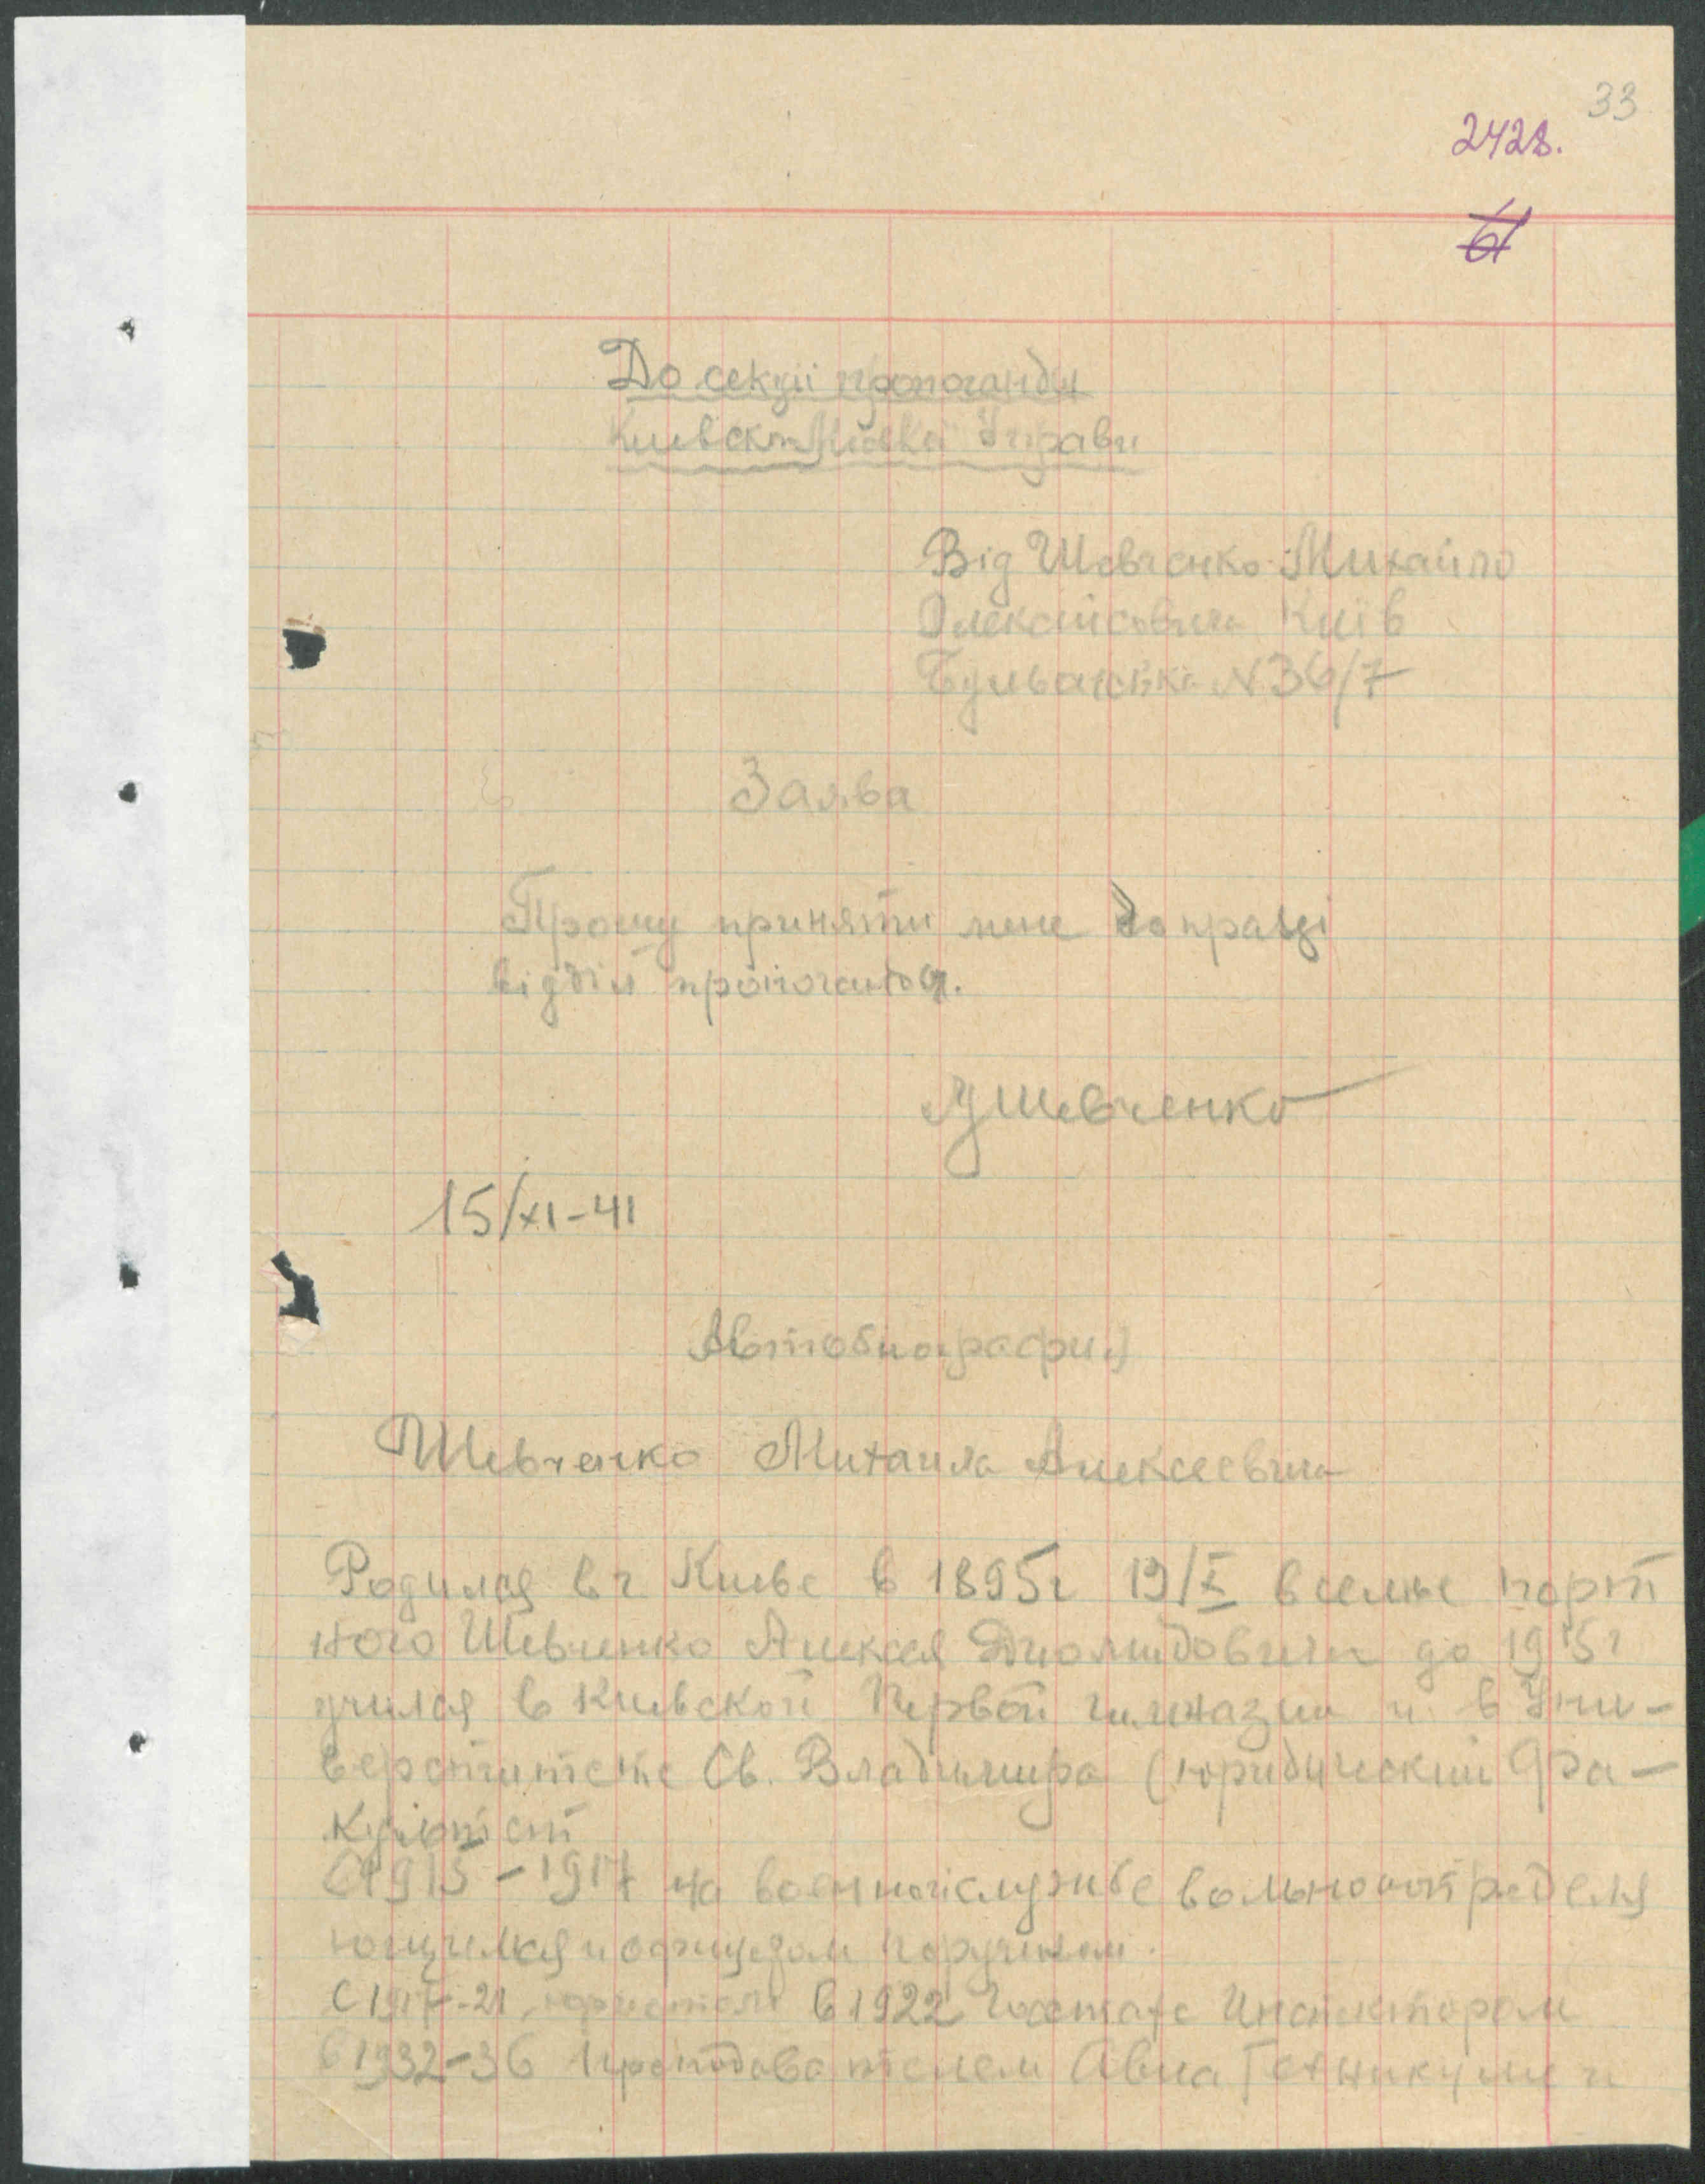 33
2428.
61
До секции пропоганды
Киевской Управи
Від Шевченко Михайло
Олексійовича Київ
N 36/7
Заява
Прошу приняти мене до праці
відділ пропоганды.
Шевченко
15/XI-41
Автобиография
Шевченко Михаила Алексеевича
Родился в г Киеве в 1895г 19/X в семье порт
ного Шевченко Алексея Диомидовича до 1915г
учился в Киевской Первой гимназии и в Уни-
верситете Св. Владимира (юридический Фа-
культет
С 1915-1917 на военной службе вольноопределя
ющимся и офицером
С 1917-21 юристом в 1922 Инспектором
в 1932-36 Преподавателем Авиа Техникуме и